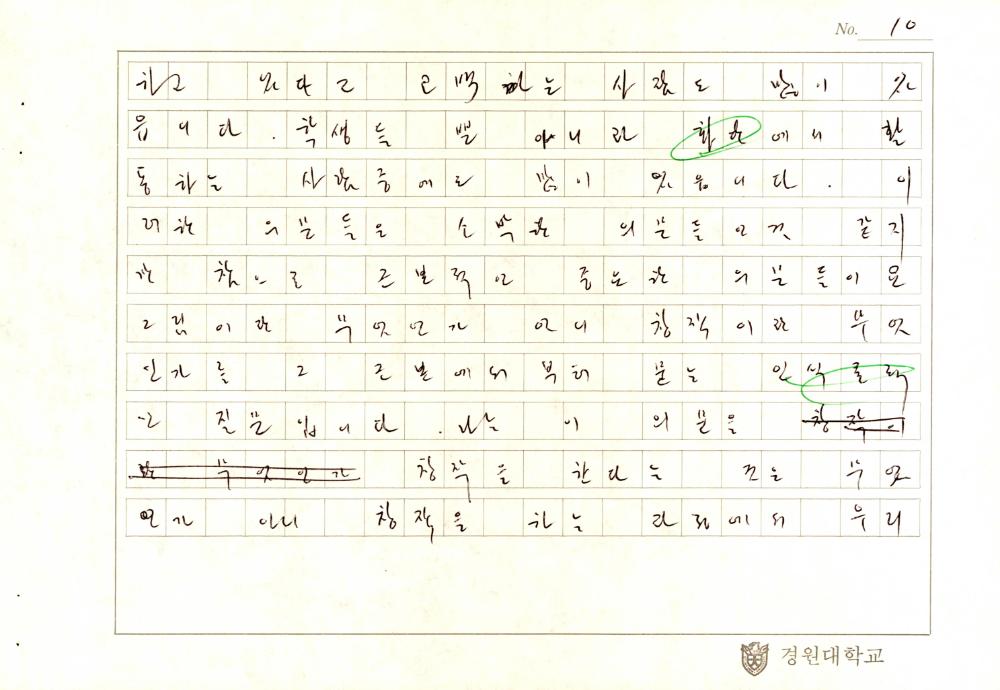 No. 10
하고 있다고 고백하는 사람도 많이 있
읍니다. 학생들 뿐 아니라 화단에서 활
동하는 사람중에도 많이 있읍니다. 이
러한 의문들은 소박한 의문들인것 같지
만 참으로 근본적인 중요한 의문들이요
그림이란 무엇인가 아니 창작이란 무엇
인가를 그 근본에서 부터 묻는 인식론적
인 질문입니다. 나는 이 의문을 창작이
란 무엇인가 창작을 한다는 것은 무엇
인가 아니 창작을 하는 과정에서 우리
경원대학교